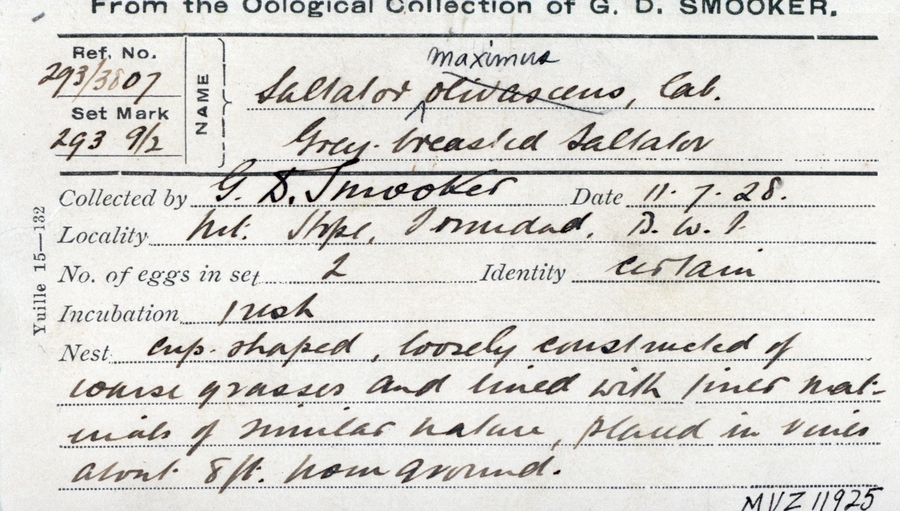 From the Oological Collection of G. D. SMOOKER.
Ref. No.
293/3807
Set Mark
293 9/2
NAME
maximus
Saltator olivascens, Cab.
Grey-breasted Saltator
Collected by G. D. Smooker Date 11.7.28.
Locality Mt. Hope, Trinidad, B.W.I.
No. of eggs in set 2 Identity certain
Incubation fresh
Nest cup-shaped, loosely constructed of
coarse grasses and lined with finer mat-
erials of similar nature, placed in vines
about 8ft. from ground.
Yuille 15—132
MVZ 11925